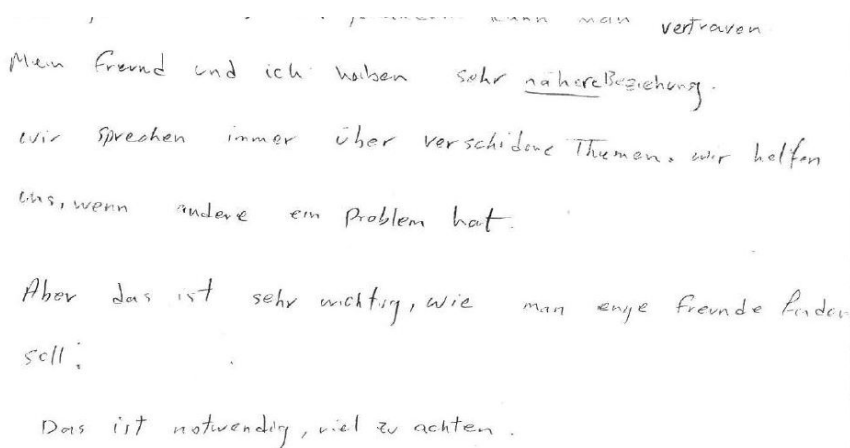 kann man vertrauen.
Mein Freund und ich haben sehr nähere Beziehung.
wir sprechen immer über verschidene Themen. wir helfen
uns, wenn andere ein Problem hat.
Aber das ist sehr wichtig, wie man enge freunde finden
soll.
Das ist notwendig, viel zu achten.